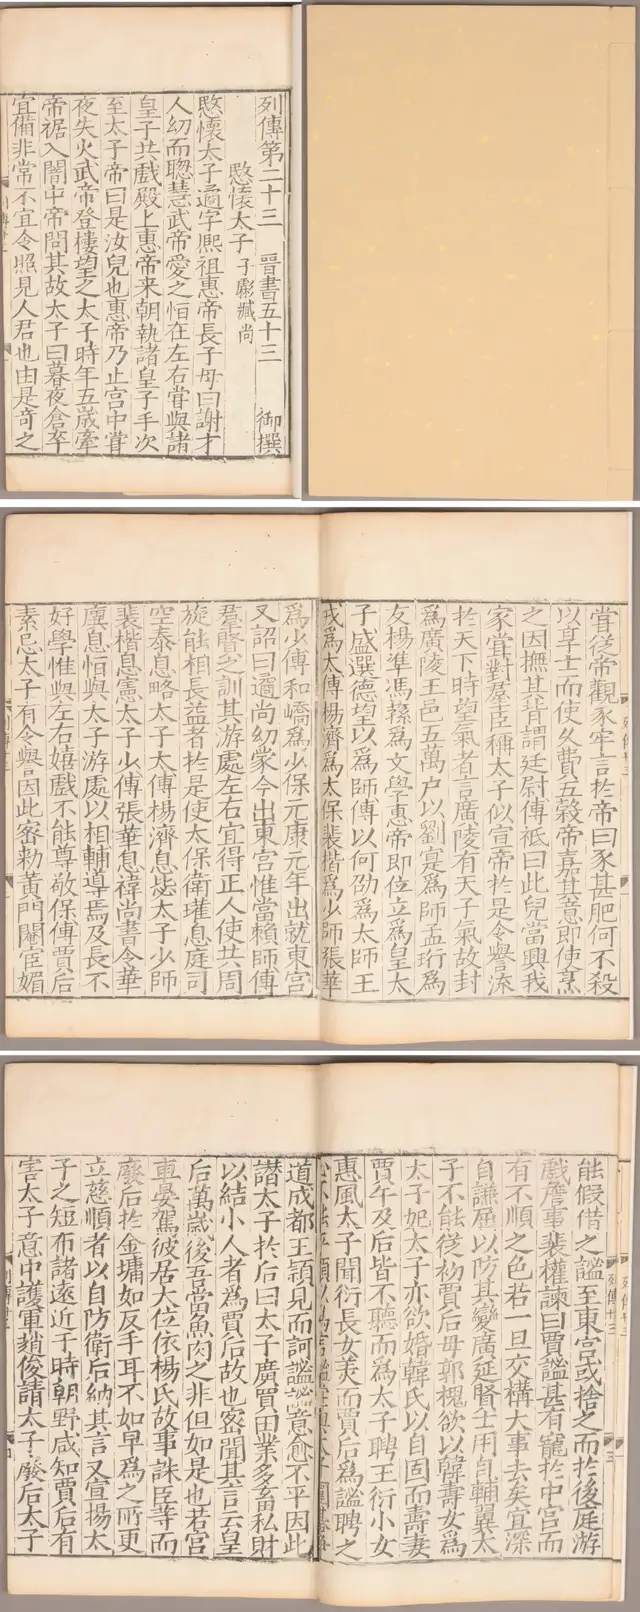 列傳第二十三 晉書五十三 御撰
愍懷太子 子虨臧尚
愍懷太子遹字熙祖惠帝長子母曰謝才
人幼而聦慧武帝愛之恒在左右甞與諸
皇子共戲殿上惠帝来朝執諸皇子手次
至太子帝曰是汝兒也惠帝乃止宫中甞
夜失火武帝登樓望之太子時年五歳牽
帝裾入闇中帝問其故太子曰暮夜倉卒
宜備非常不宜令照見人君也由是奇之
甞從帝觀豕牢言於帝曰豕甚肥何不殺
以享士而使久費五穀帝嘉其意即使烹
之因撫其背謂廷尉傅祗曰此兒當興我
家甞對羣臣稱太子似宣帝於是令譽流
於天下時望氣者言廣陵有天子氣故封
爲廣陵王邑五萬户以劉寔爲師孟珩爲
友楊準馮蓀爲文學惠帝即位立爲皇太
子盛選德望以爲師傅以何劭爲太師王
戎爲太傅楊濟爲太保裴楷爲少師張華
爲少傅和嶠爲少保元康元年出就東宫
又詔曰遹尚幼蒙今出東宫惟當賴師傅
羣賢之訓其游處左右宜得正人使共周
旋能相長益者於是使太保衛瓘息庭司
空泰息略太子太傅楊濟息毖太子少師
裴楷息憲太子少傅張華息禕尚書令華
廙息恒與太子游處以相輔導焉及長不
好學惟與左右嬉戲不能尊敬保傅賈后
素忌太子有令譽因此密勑黄門閹宦媚
能假借之謐至東宫或捨之而於後庭游
戲詹事裴權諫曰賈謐甚有寵於中宫而
有不順之色若一旦交構大事去矣宜深
自謙屈以防其變廣延賢士用自輔翼太
子不能從初賈后母郭槐欲以韓壽女爲
太子妃太子亦欲婚韓氏以自固而壽妻
賈午及后皆不聽而爲太子聘王衍小女
惠風太子聞衍長女美而賈后爲謐聘之
心不能平頗以爲言謐甞與太子圍棊爭
道成都王穎見而訶謐謐意愈不平因此
譖太子於后曰太子廣買田業多畜私財
以結小人者爲賈后故也密聞其言云皇
后萬歳後吾當魚肉之非但如是也若宫
車晏駕彼居大位依楊氏故事誅臣等而
廢后於金墉如反手耳不如早爲之所更
立慈順者以自防衛后納其言又宣揚太
子之短布諸遠近于時朝野咸知賈后有
害太子意中護軍趙俊請太子廢后太子